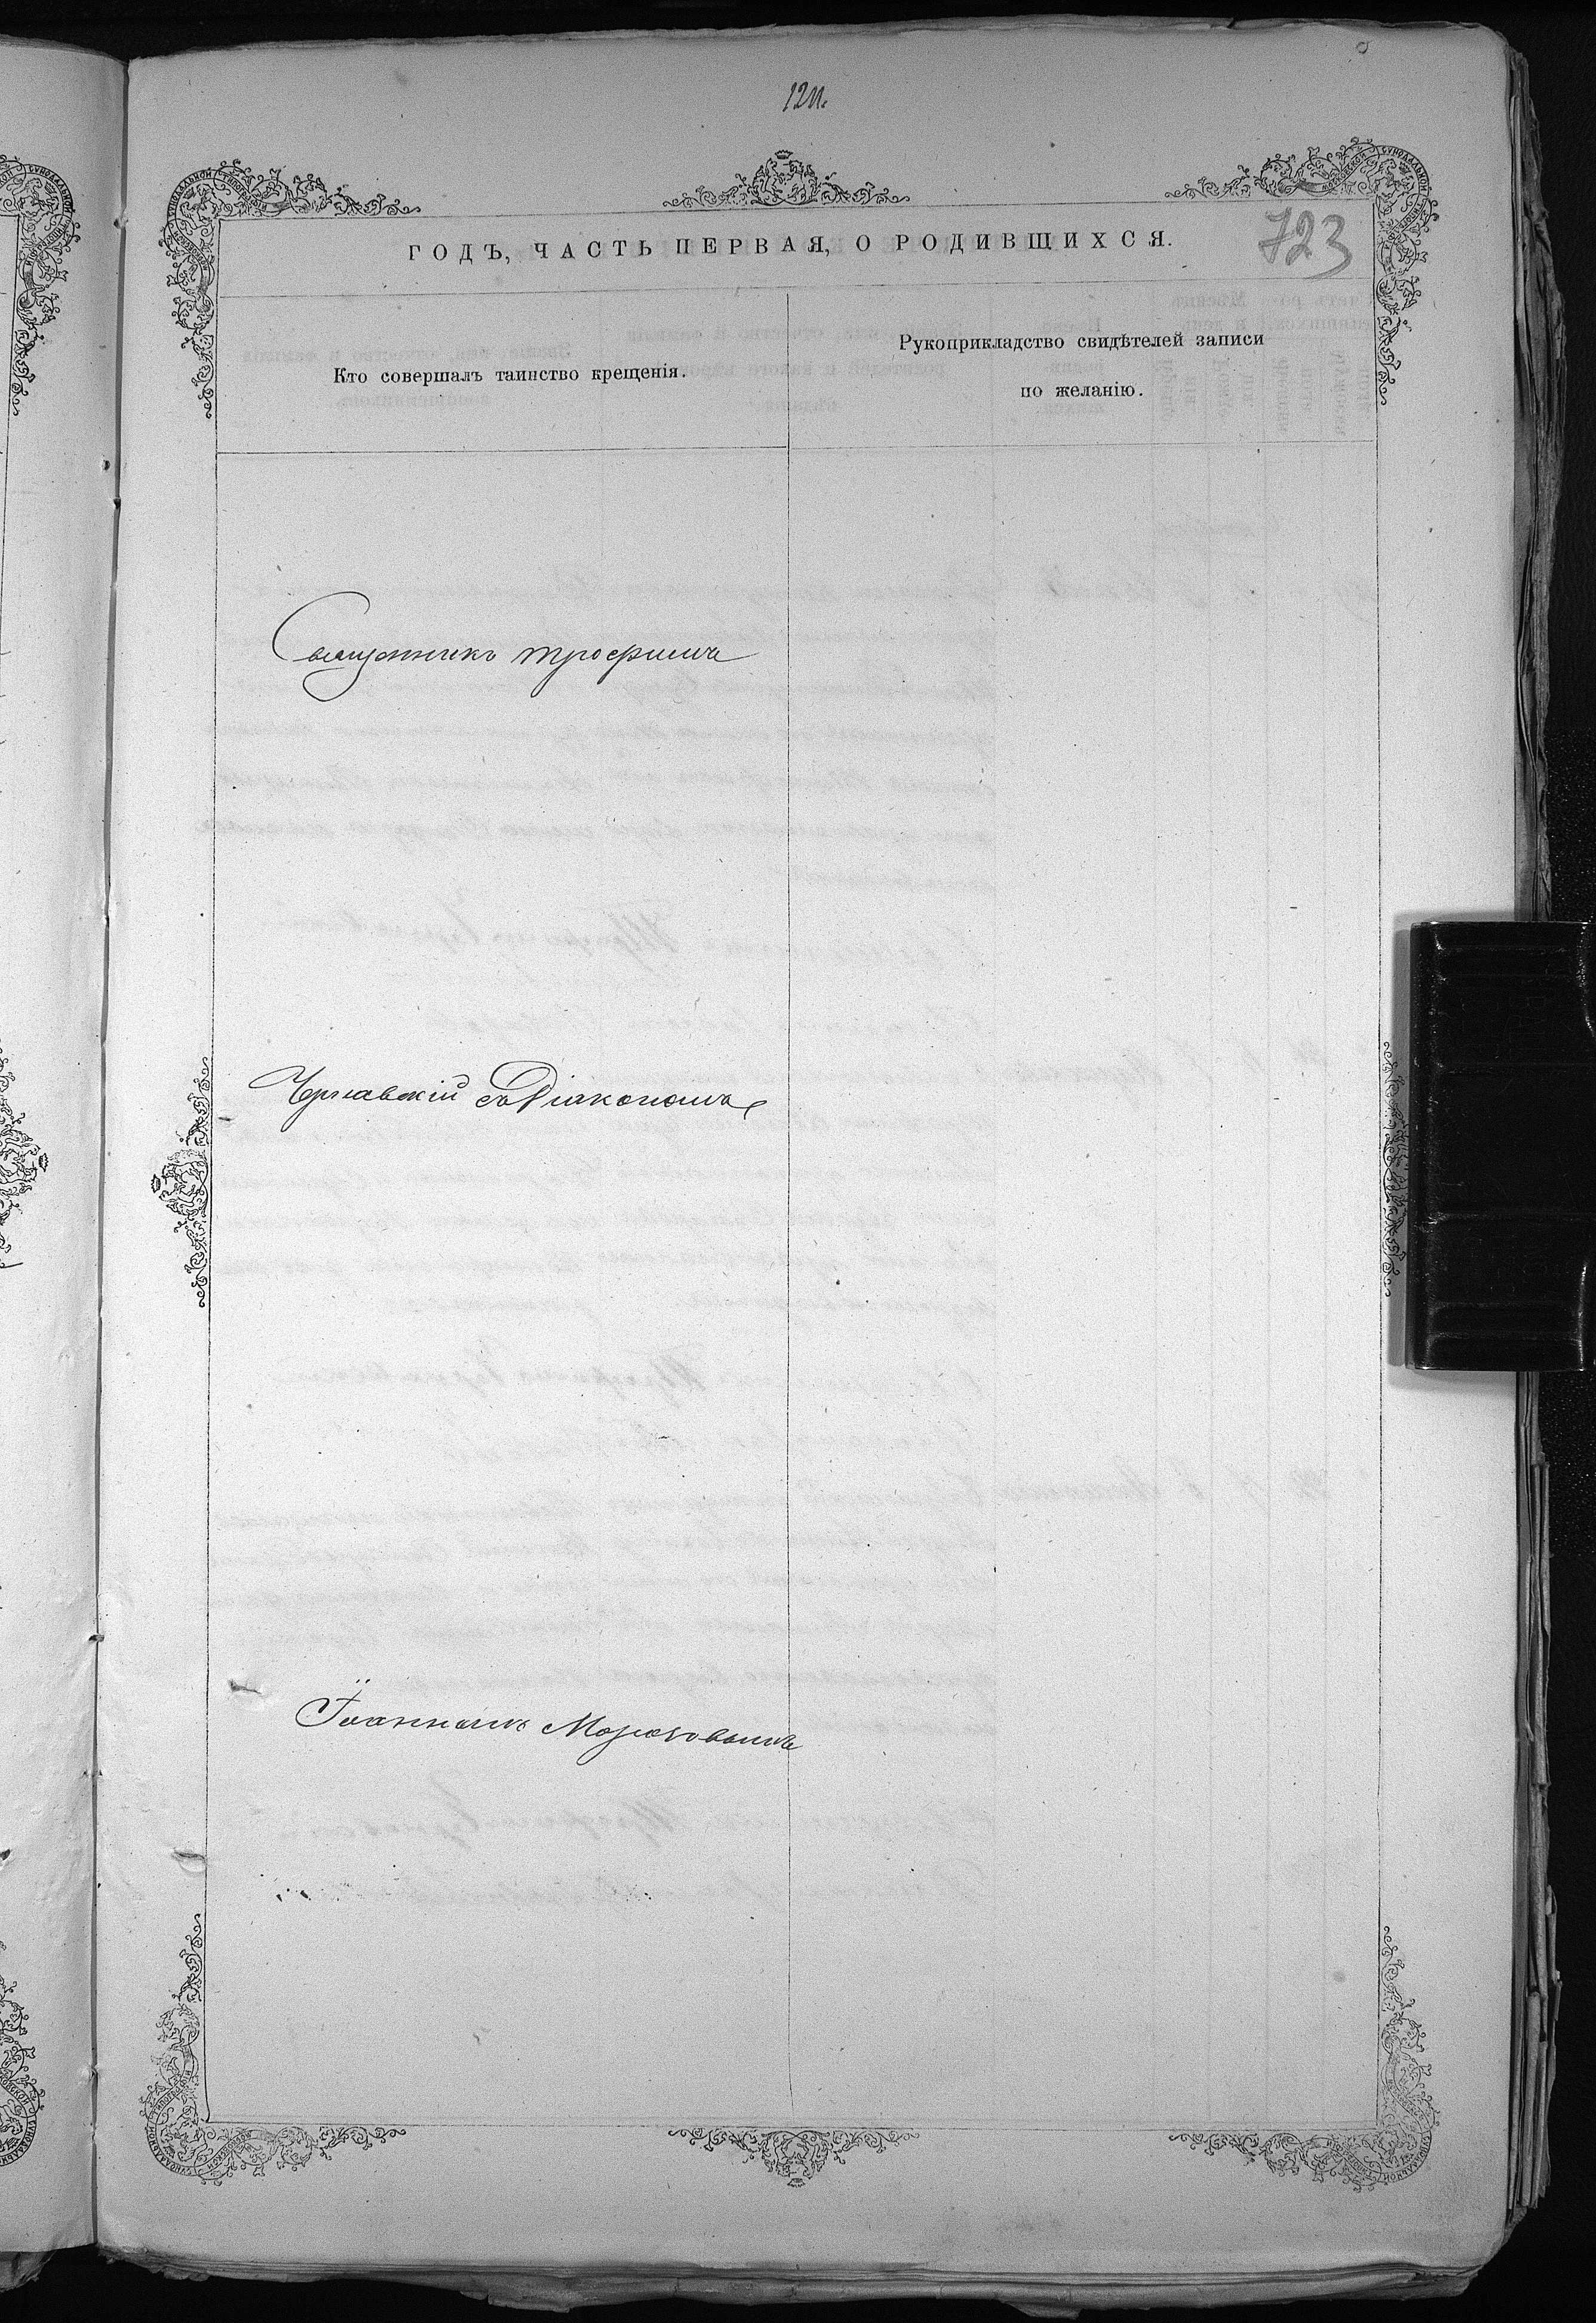 12 П.
ГОДЪ, ЧАСТЬ ПЕРВАЯ, О РОДИВШИХСЯ.
723
Кто совершалъ таинство крещенія.
Рукоприкладство свидѣтелей записи
по желанію.
Священникъ Трофимъ
Чернавскій съ Діакономъ
Іоанномъ Морозовымъ